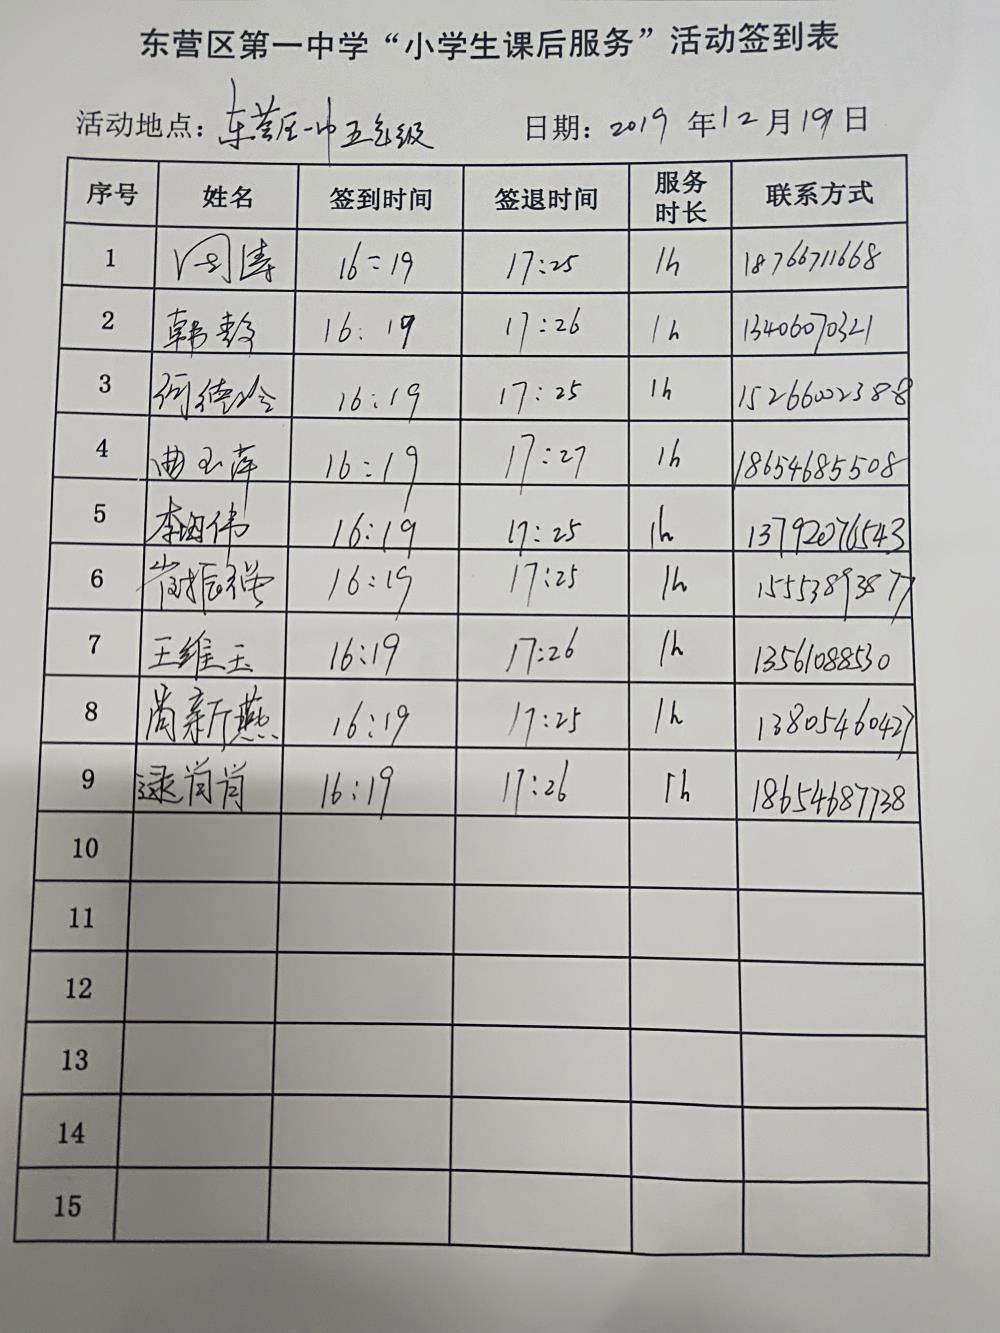 东营区第一中学“小学生课后服务”活动签到表
活动地点：东营区一中五年级 日期：2019 年 12 月 19 日
序号 姓名 签到时间 签退时间 服务时长 联系方式
1 周涛 16:19 17:25 1h 18766711668
2 韩毅 16:19 17:26 1h 13406070321
3 16:19 17:25 1h 15266002388
4 曲玉萍 16:19 17:27 1h 18654685508
5 16:19 17:25 1h 13792076543
6 崔振强 16:19 17:25 1h 15553893877
7 王维玉 16:19 17:26 1h 13561088530
8 尚新燕 16:19 17:25 1h 13805460427
9 逯肖肖 16:19 17:26 1h 18654687738
10
11
12
13
14
15